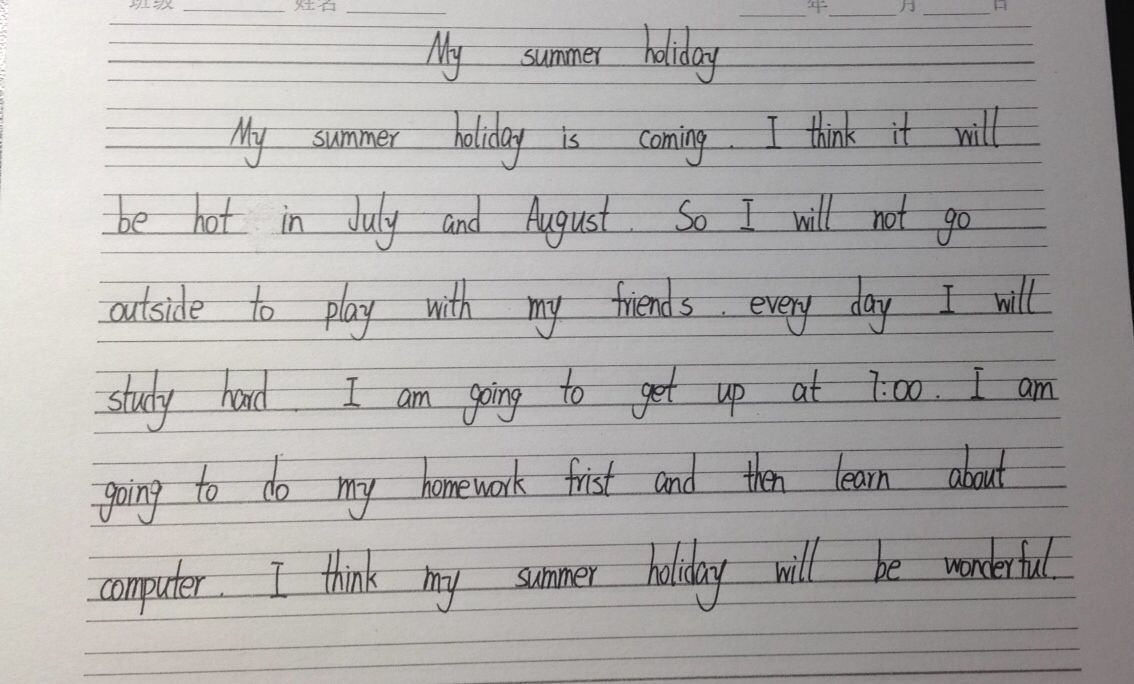 班级 姓名 年 月 日
My summer holiday
My summer holiday is coming. I think it will
be hot in July and August. So I will not go
outside to play with my friends. every day I will
study hard. I am going to get up at 7:00. I am
going to do my homework frist and then learn about
computer. I think my summer holiday will be wonderful.